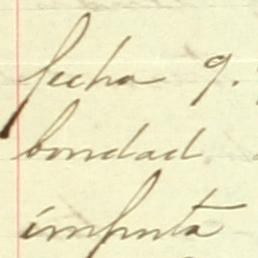 fecha 9.
bondad
imputa